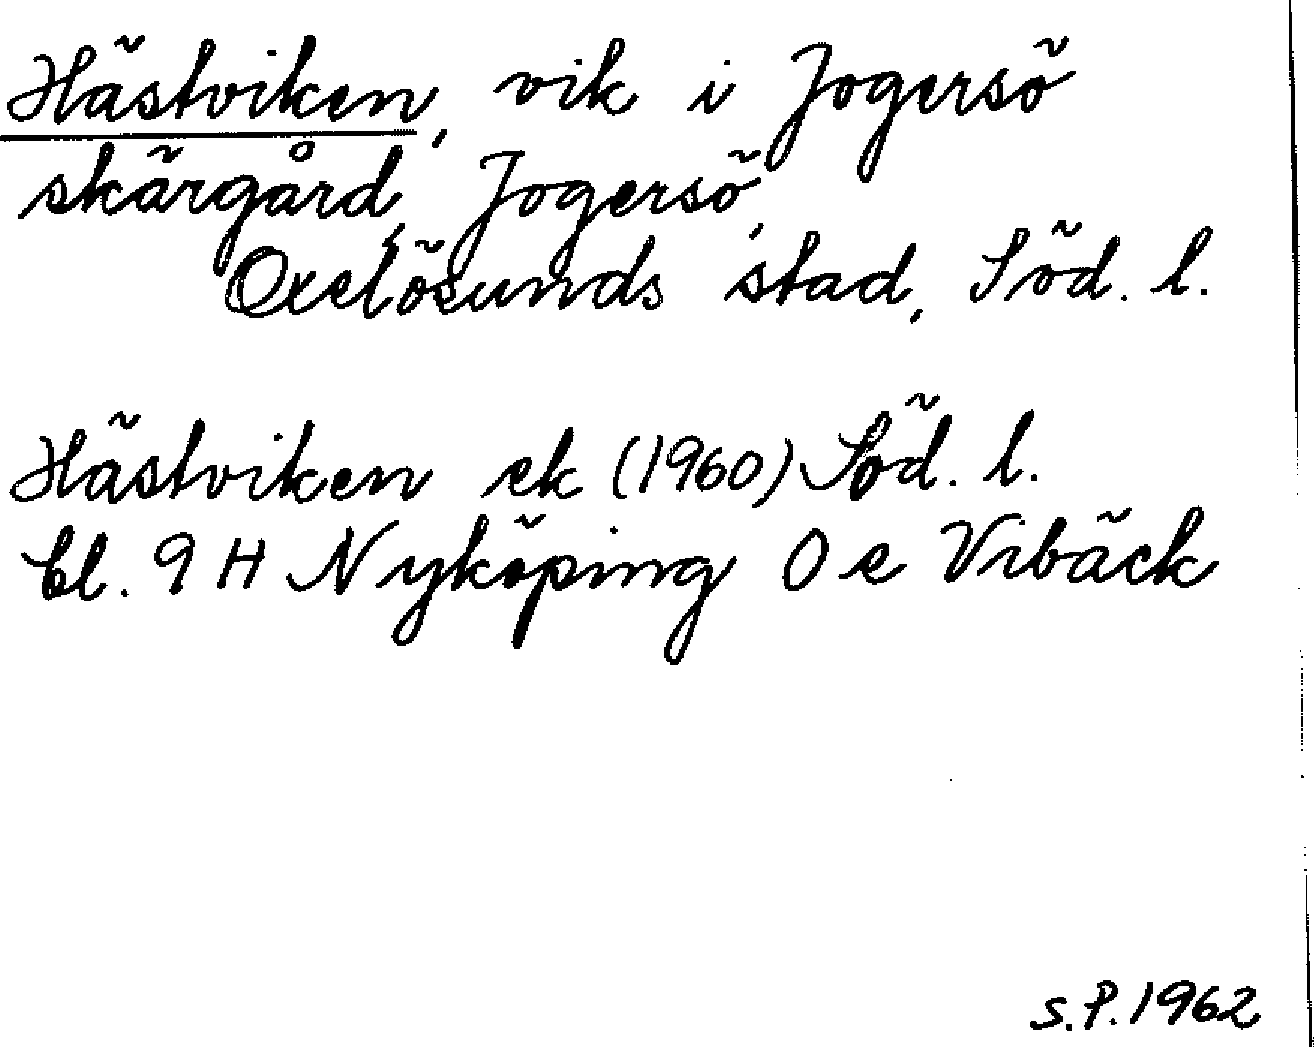 Hästviken, vik i Jogersö
skärgård, Jogersö,
Oxelösunds stad, Söd. l.
Hästviken ek (1960) Söd. l.
bl. 9 H Nyköping O e Vrbäck
S.P. 1962